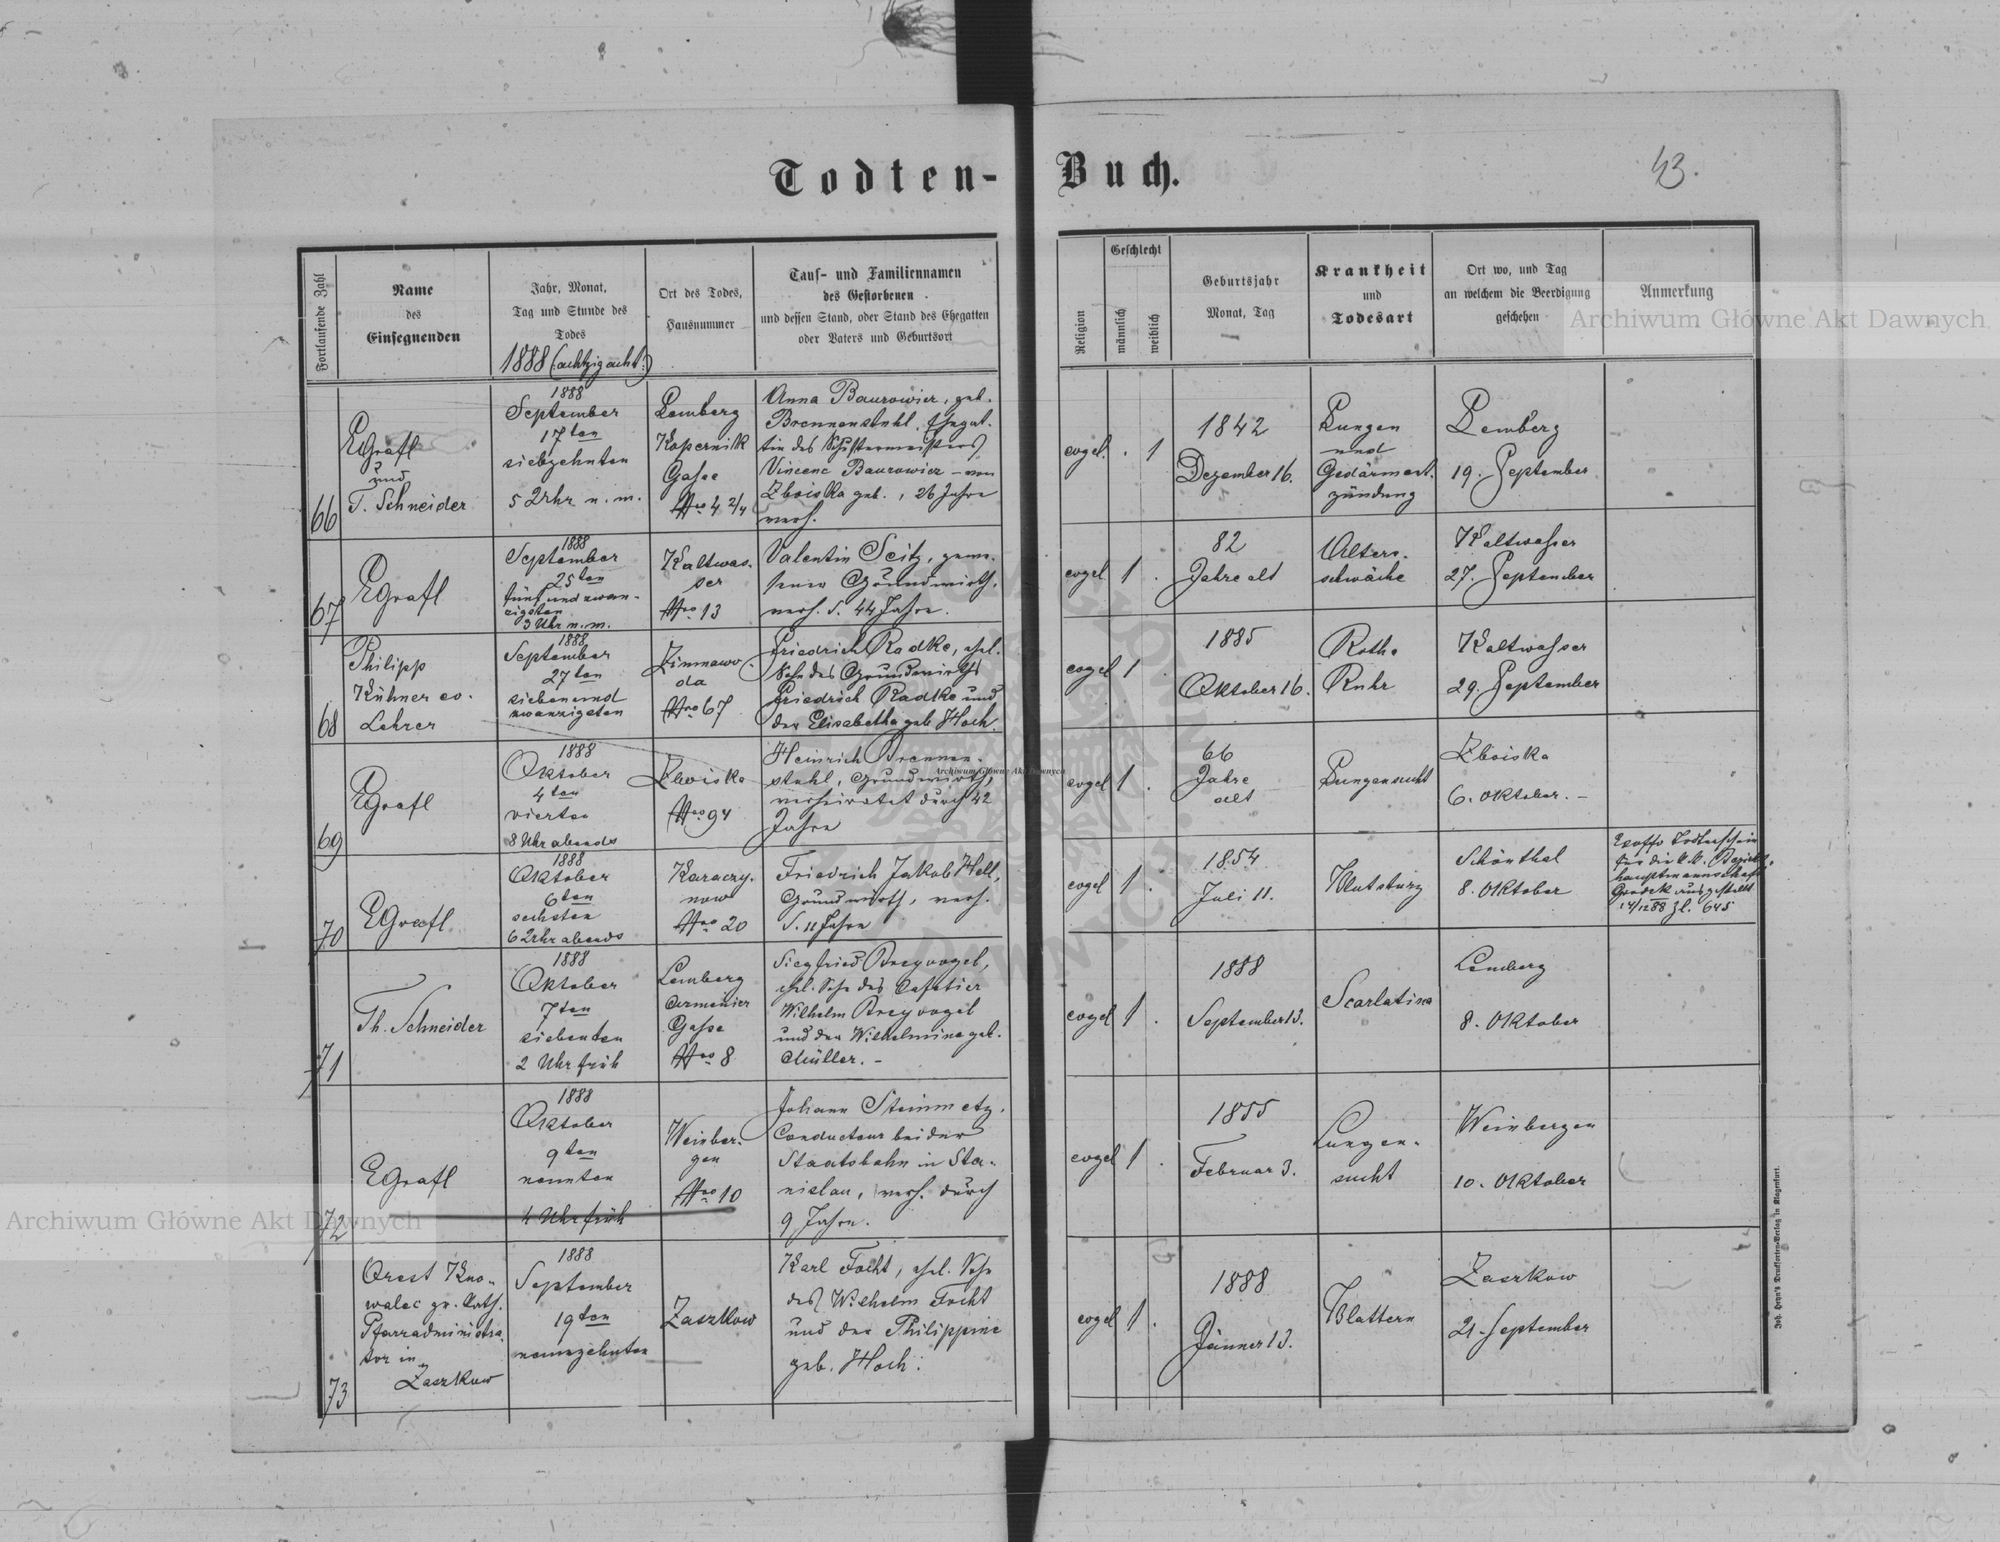 Todten-Buch.
43.
Fortlaufende Zahl
Name
des
Einsegnenden
Jahr, Monat,
Tag und Stunde des
Todes
1888 (:achtzig acht:)
Ort des Todes,
Hausnummer
Tauf- und Familiennamen
des Gestorbenen
und dessen Stand, oder Stand des Ehegatten
oder Vaters und Geburtsort
Religion
Geschlecht
männlich
weiblich
Geburtsjahr
Monat, Tag
Krankheit
und
Todesart
Ort wo, und Tag
an welchem die Beerdigung
geschehen
Anmerkung
66
EGrafl
und
T. Schneider
1888
September
17ten
siebzehnten
5 Uhr n. m.
Lemberg
Kopernik
Gasse
Nro 4 2/4
Anna Baurowicz, geb.
Brennenstuhl, Ehegat-
tin des Schustermeisters
Vincenc Baurowicz – von
Zboiska geb., 26 Jahre
verh.
evgel.
. 1
1842
Dezember 16.
Lungen
und
Gedärment-
zündung
Lemberg
19. September
67
EGrafl
1888
September
25ten
fünf und zwan-
zigsten
3 Uhr n. m.
Kaltwas-
ser
Nro 13
Valentin Seitz, gewe-
sener Grundwirth,
verh. d. 44 Jahre.
evgel
1 .
82
Jahre alt
Alters-
schwäche
Kaltwasser
27. September
68
Philipp
Kühner ev.
Lehrer
1888
September
27ten
siebenund
zwanzigsten
Zimnawo-
da
Nro 67
Friedrich Radke, ehel.
Sohn des Grundwirths
Friedrich Radke und
der Elisabetha geb. Hoch.
evgel
1 .
1885
Oktober 16.
Rothe
Ruhr
Kaltwasser
29. September
69
EGrafl
1888
Oktober
4ten
vierten
8 Uhr abends
Zboiska
Nro 94
Heinrich Brennen-
stuhl, Grundwirth,
verheiratet durch 42
Jahre
evgel
1 .
66
Jahre
alt
Lungensucht
Zboiska
6. Oktober. –
70
EGrafl
1888
Oktober
6ten
sechsten
6 Uhr abends
Karaczy-
now
Nro 20
Friedrich Jakob Hell,
Grundwirth, verh.
d. 11 Jahre
evgel
1 .
1854
Juli 11.
Blutsturz
Schönthal
8. Oktober
Exoffo Todtenschein
für die k.k. Bezirks-
hauptmannschaft
Grodek ausgestellt
14/12 88 Zl. 645
71
Th. Schneider
1888
Oktober
7ten
siebenten
2 Uhr früh
Lemberg
Armenier
Gasse
Nro 8
Siegfried Breyvogel,
ehel. Sohn des Cafetier
Wilhelm Breyvogel
und der Wilhelmine geb.
Müller. –
evgel
1 .
1888
September 13.
Scarlatina
Lemberg
8. Oktober
72
EGrafl
1888
Oktober
9ten
neunten
4 Uhr früh
Weinber-
gen
Nro 10
Johann Steinmetz,
Conducteur bei der
Staatsbahn in Sta-
nislau, verh. durch
9 Jahre.
evgel
1 .
1855
Februar 3.
Lungen-
sucht
Weinbergen
10. Oktober
73
Orest Kno-
walec gr. kath.
Pfarradministra-
tor in
Zaszkow
1888
September
19ten
neunzehnten
Zaszkow
Karl Focht, ehel. Sohn
des Wilhelm Focht
und der Philippine
geb. Hoch.
evgel
1 .
1888
Jänner 13.
Blattern
Zaszkow
21. September
Joh. Heyn's Drucksorten-Verlag in Klagenfurt.
Archiwum Główne Akt Dawnych
Archiwum Główne Akt Dawnych
Archiwum Główne Akt Dawnych